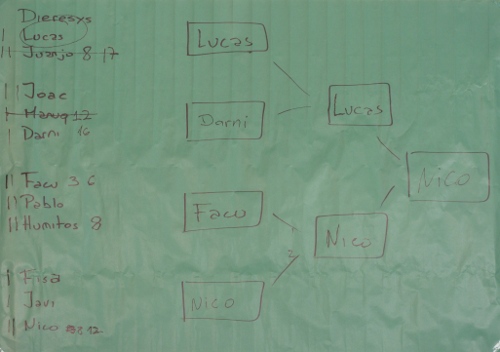 Dieresys
Lucas
Juanjo 8 17
Joac
Maruq 12
Darni 16
Facu 3 6
Pablo
Humitos 8
Fisa
Javi
Nico 12
Lucas
Darni
Facu
Nico
Lucas
Nico
Nico